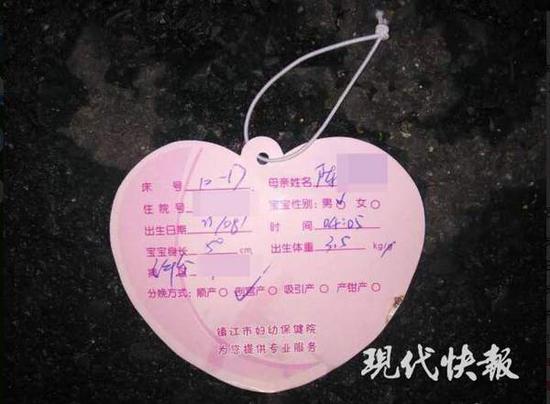 床 号 10-17 母亲姓名 陈
住 院 号 宝宝性别：男 女
出生日期 时 间 04:05
宝宝身长 50 cm 出生体重 3.5 kg
分娩方式：顺产 剖宫产 吸引产 产钳产
镇江市妇幼保健院
为您提供专业服务
现代快報